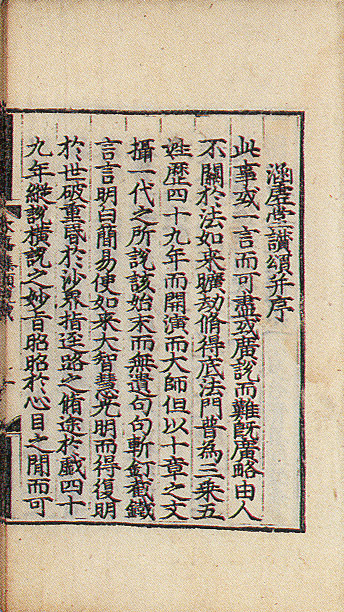 涵虛堂讚頌并序
此事或一言而可盡或廣說而難旣廣略由人
不關於法如來曠劫脩得底法門普為三乗五
姓歷四十九年而開演而大師但以十章之文
攝一代之所說該始末而無遺句句斬釘截鐵
言言明白簡易便如來大智慧光明而得復明
於世破重昏於沙界指迷路之脩途於戱四十
九年縱說橫說之妙旨昭昭於心目之間而可